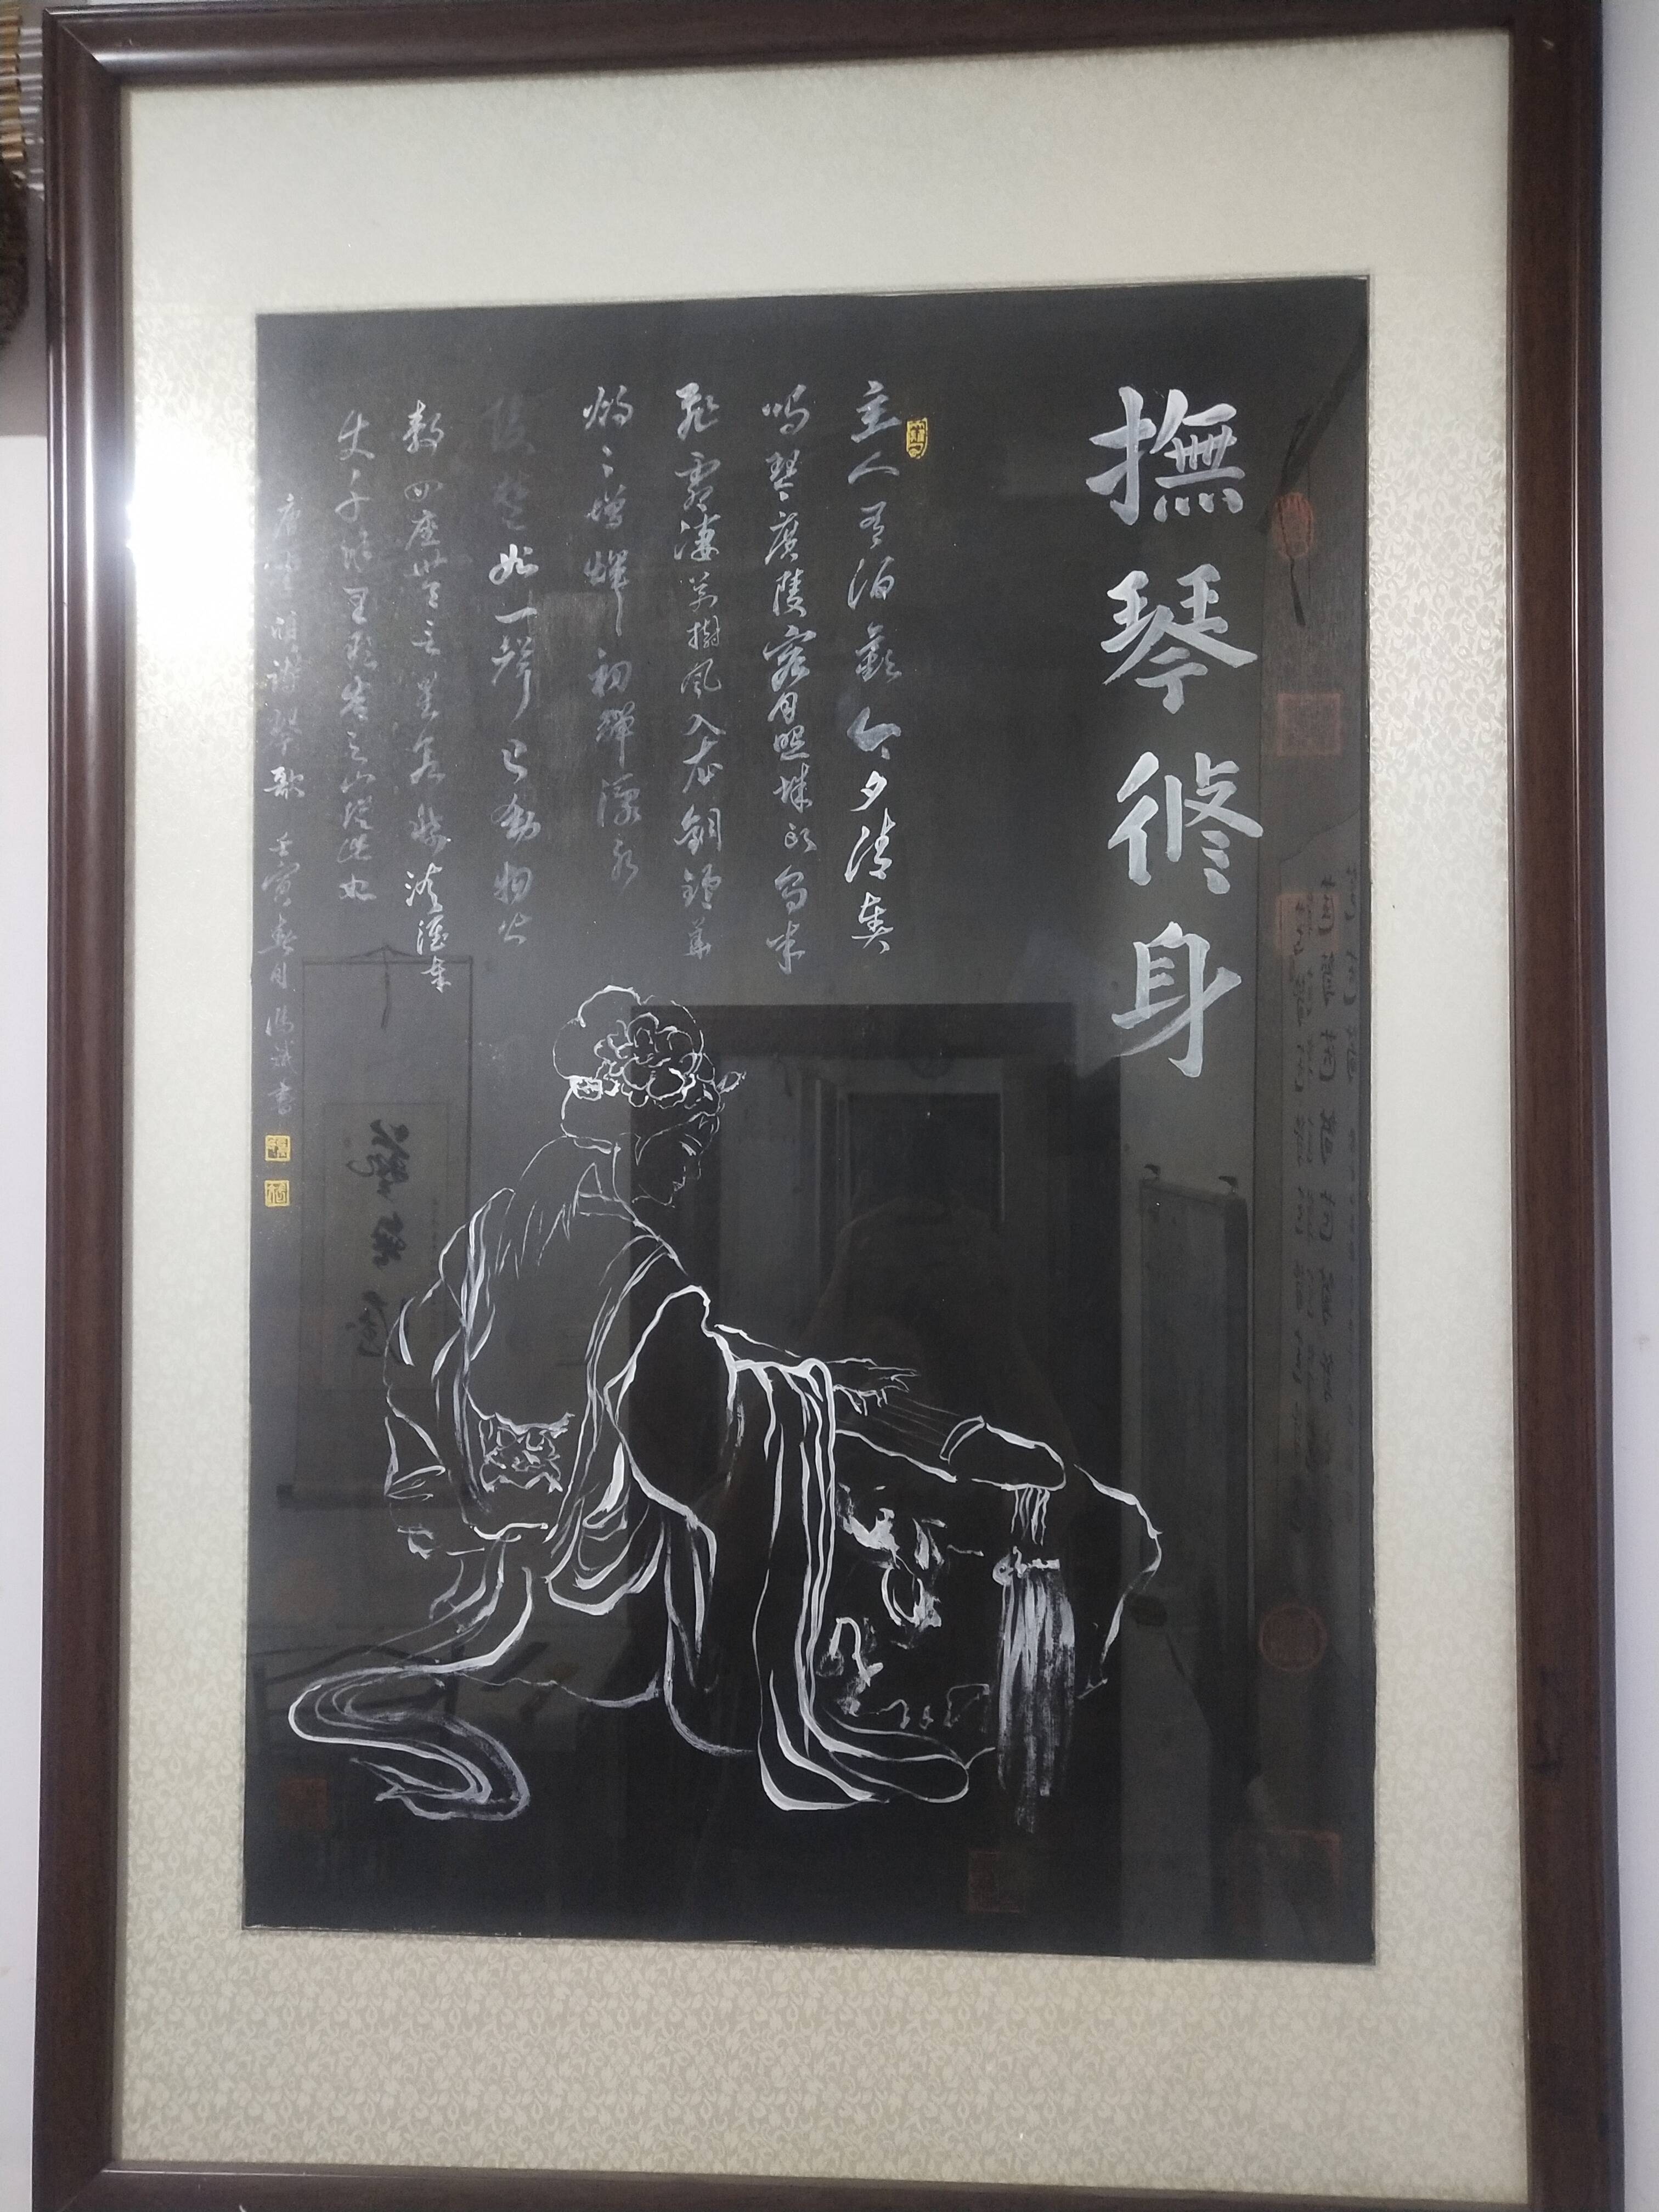 撫琴修身
主人有酒歡今夕請奏
鳴琴廣陵客月照城頭烏半
飛霜淒萬樹風入衣銅鑪華
燭燭增輝初彈淥水
後楚妃一聲已動物皆
靜四座無言星欲稀清淮奉
使千餘里敢告雲山從此始
唐李頎詩琴歌 壬寅春月
書